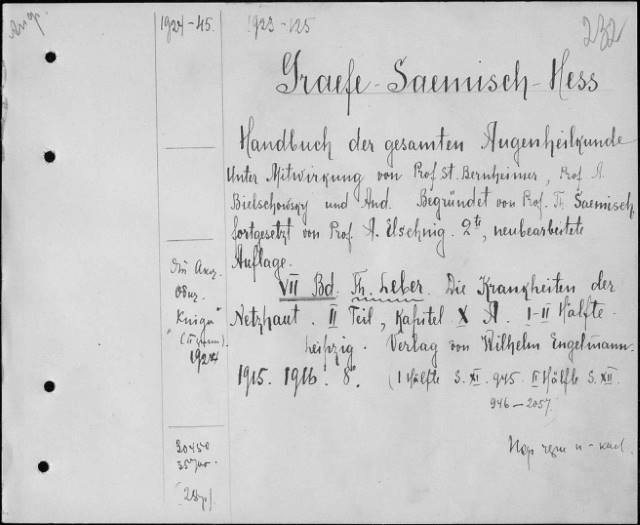 1924-45.
1923-125
232
Graefe-Saemisch-Hess
Handbuch der gesamten Augenheilkunde
Unter Mitwirkung von Prof. St. Bernheimer, Prof. A.
Bielschowsky und And. Begründet von Prof. Th. Saemisch
fortgesetzt von Prof. A. Elschnig. 2te, neubearbeitete
Auflage.
VII Bd. Th. Leber. Die Krankheiten der
Netzhaut. II Teil, Kapitel X A. I-II Hälfte.
Leipzig. Verlag von Wilhelm Engelmann.
1915. 1916. 8°. (I Hälfte S. XI. 945. II Hälfte S. XII.
946-2057.
Книга"
1924
20450